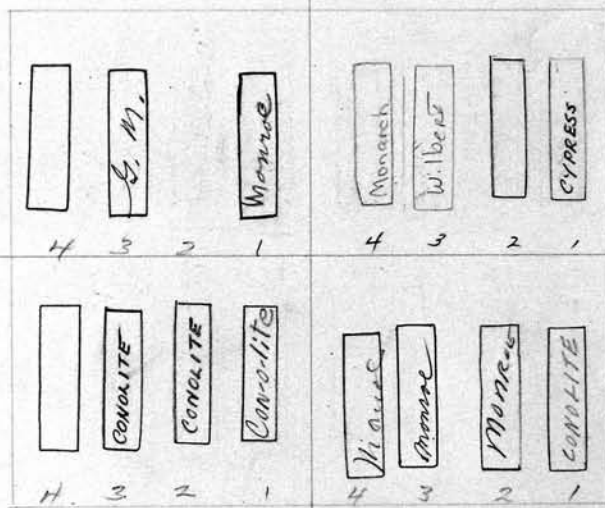 G. M.
Monroe
4 3 2 1
Monarch
Wilbert
CYPRESS
4 3 2 1
CONOLITE
CONOLITE
Conolite
4. 3 2 1
Monroe
MONROE
CONOLITE
4 3 2 1